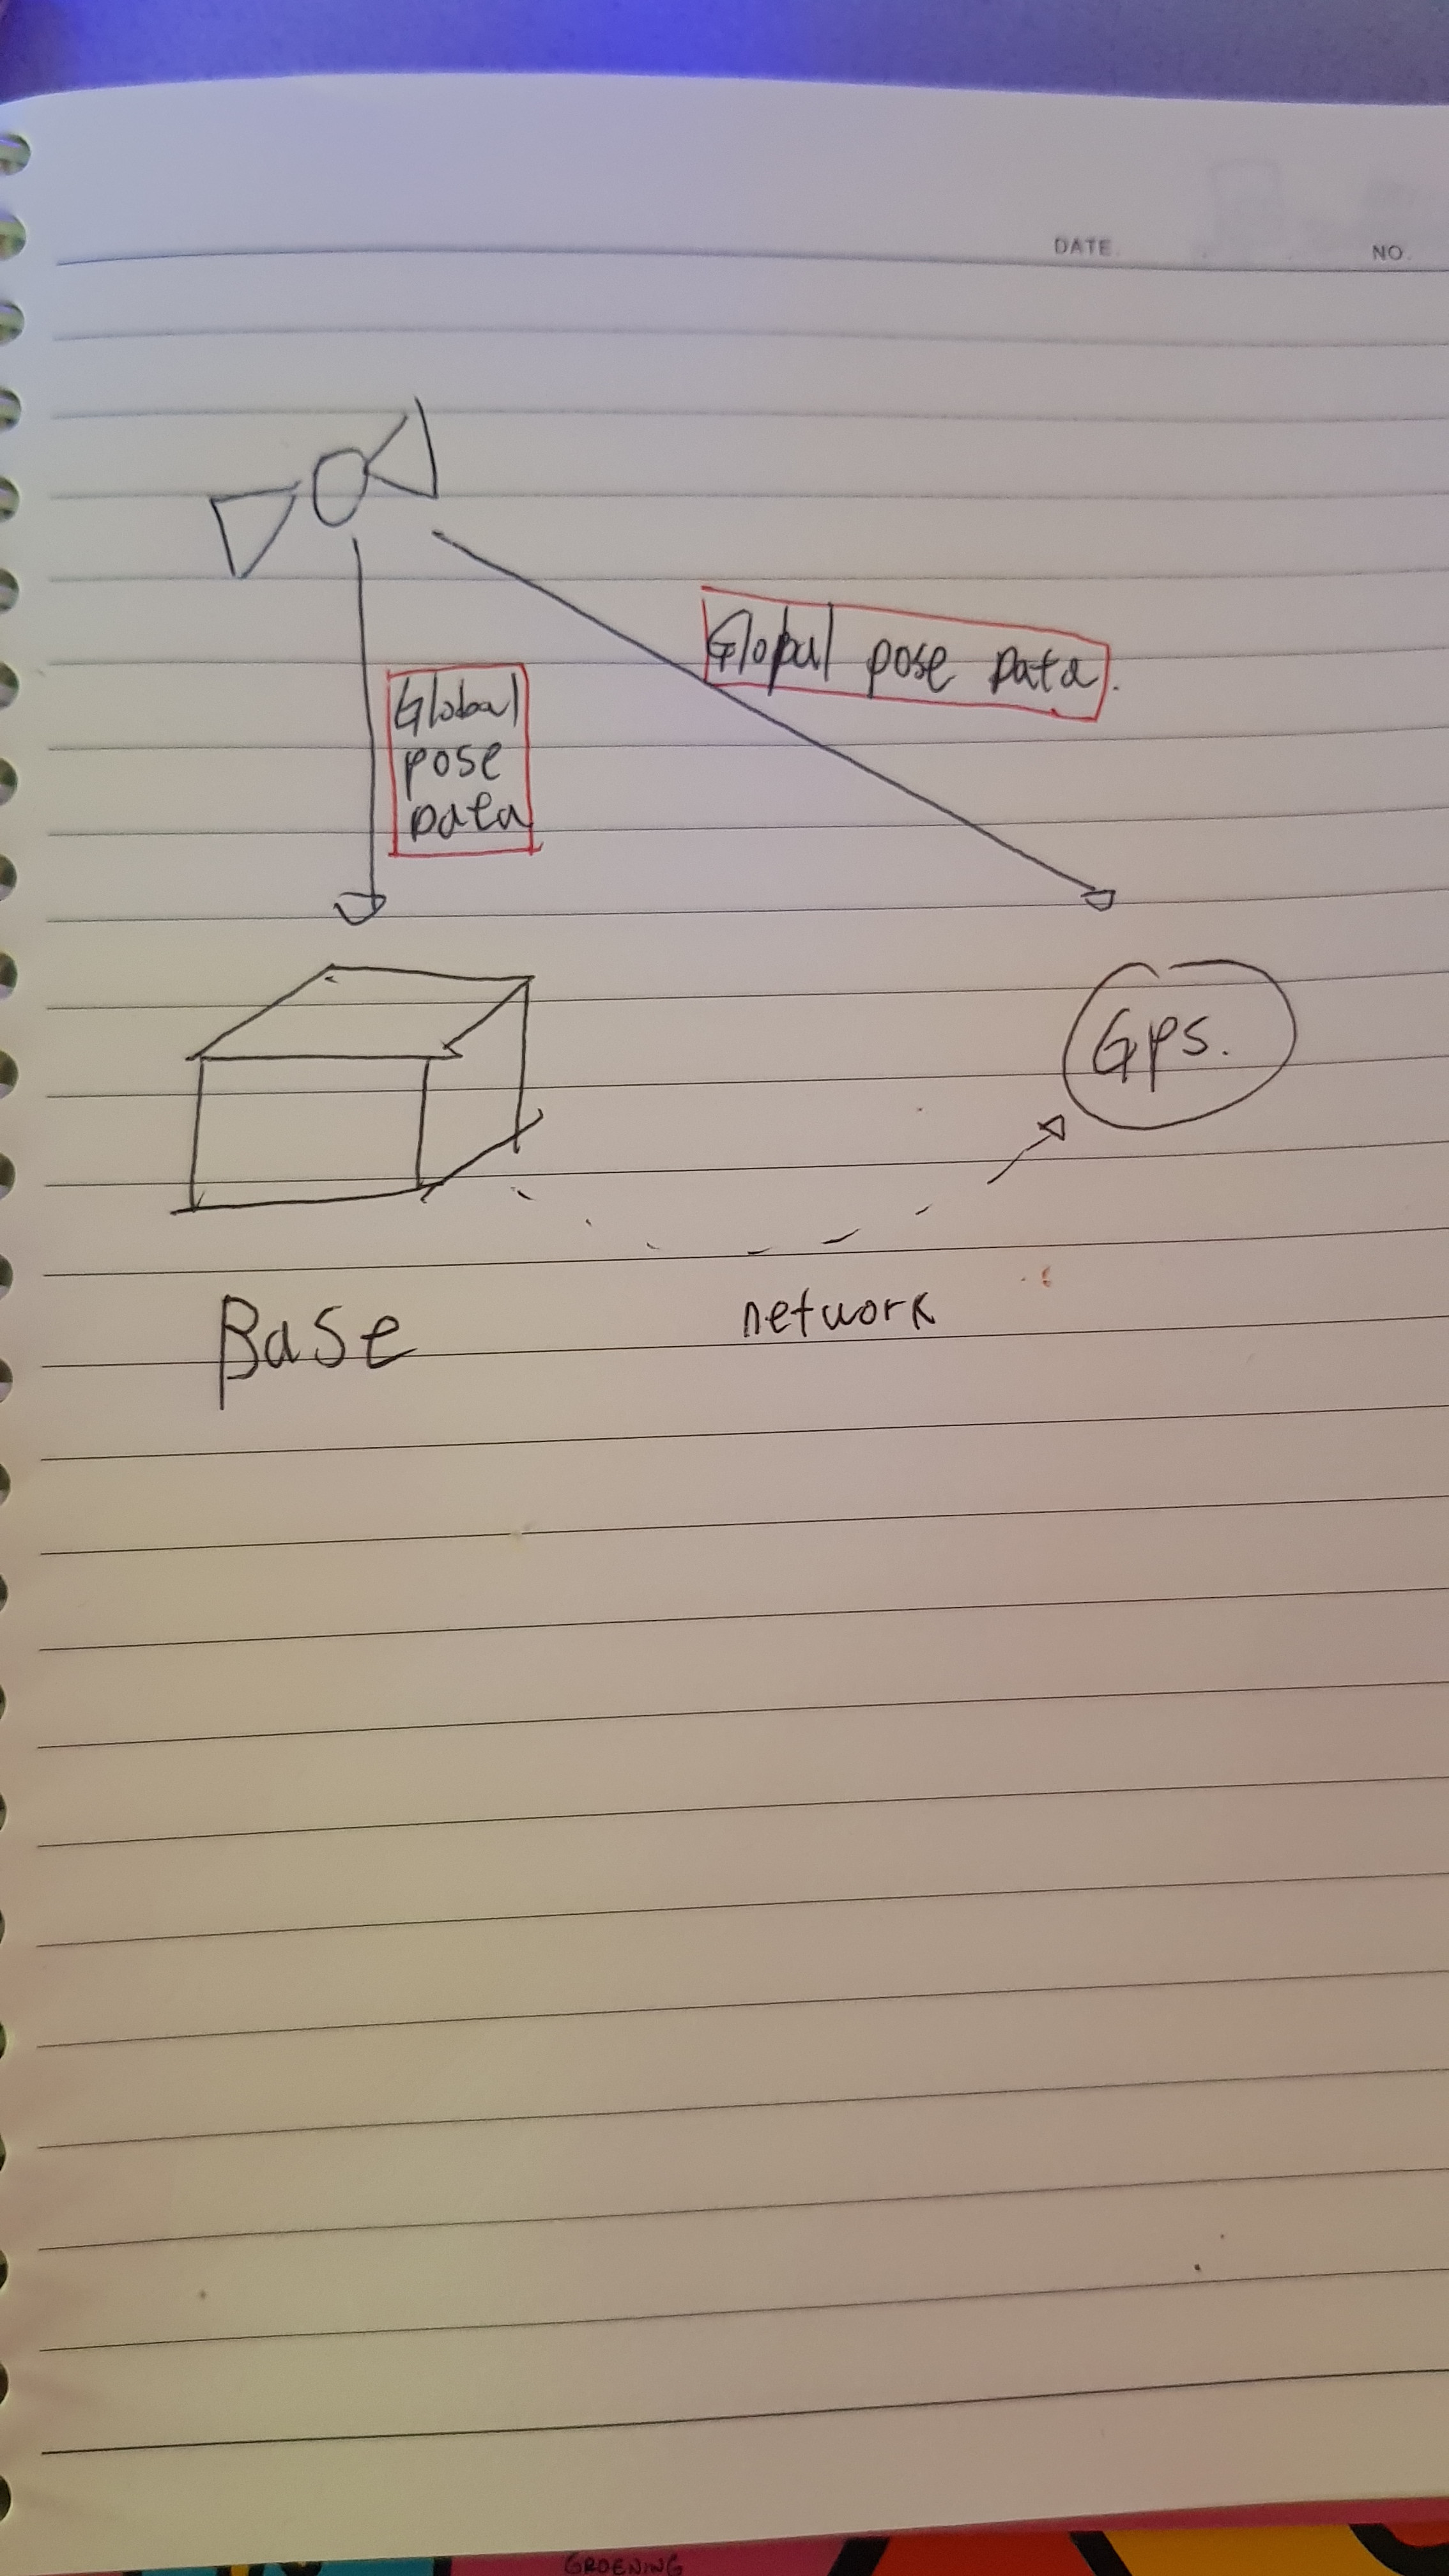 DATE.
NO.
Global pose Data.
Global
pose
Data
GPS.
network
Base
GROENING